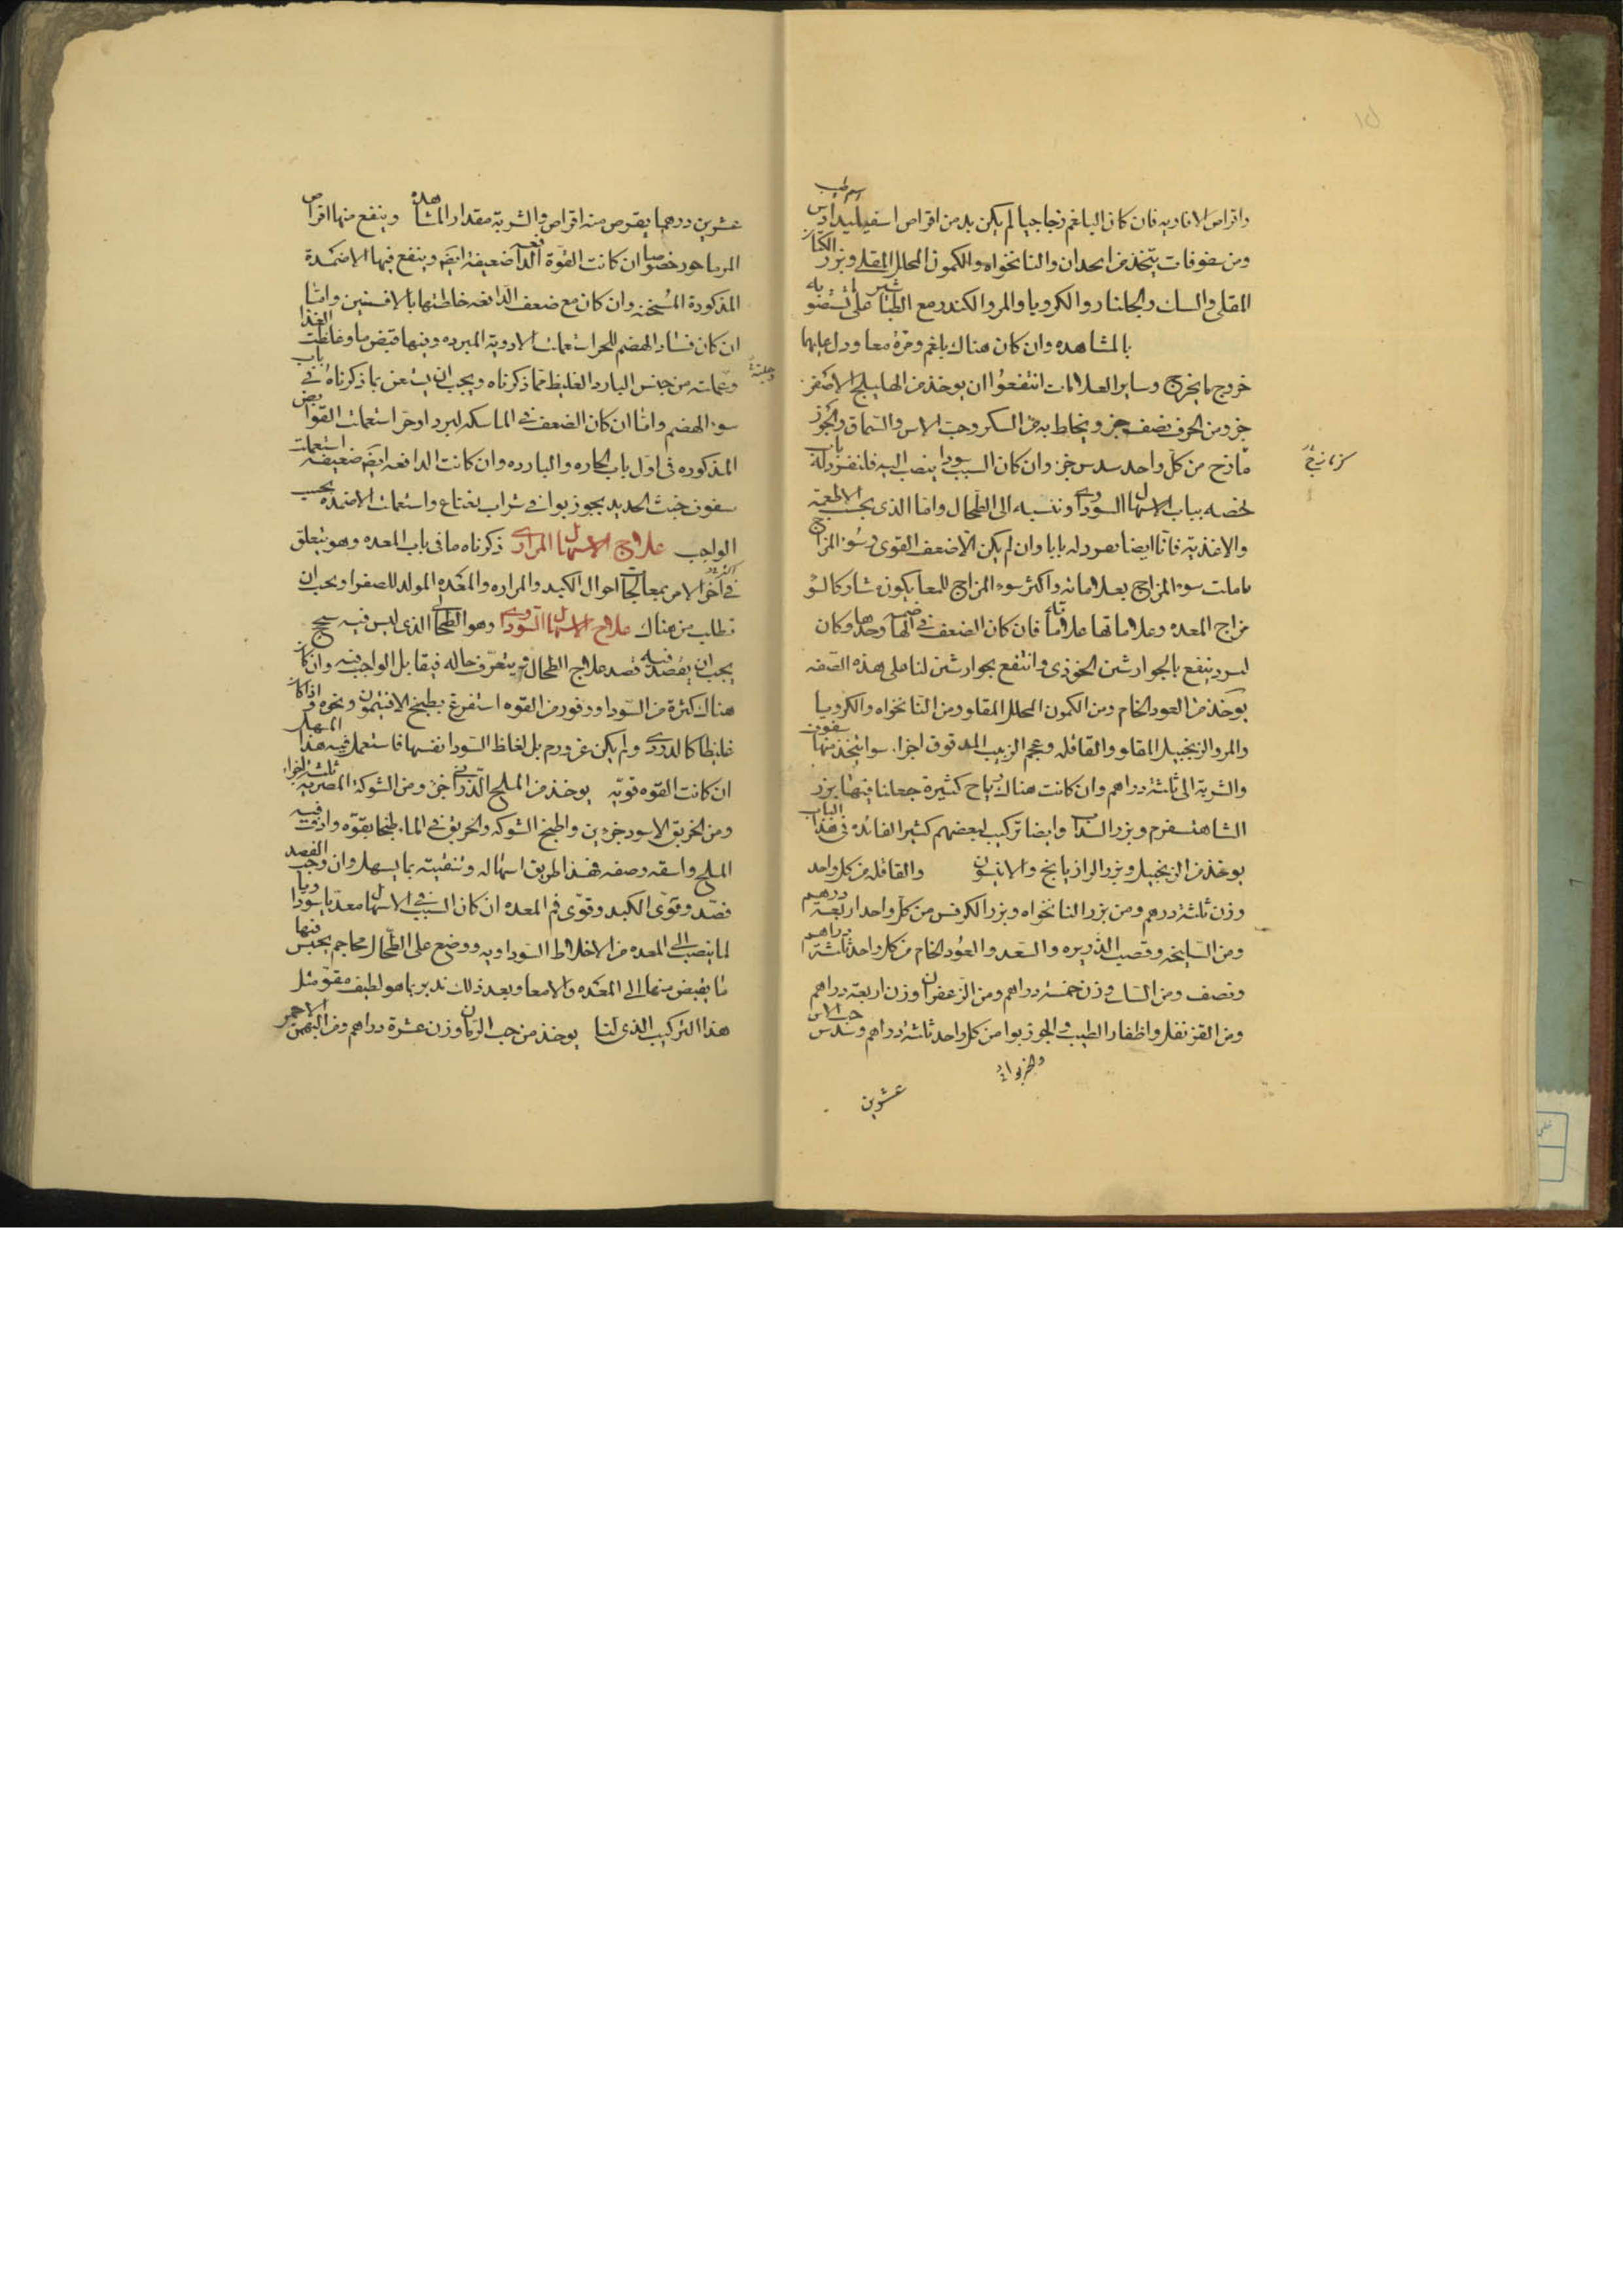 واقراص الافاويه فان كان البلغم زجاجيا لم يكن بد من اقراص اسفيليداوس
ومن سفوفات يتخذ من انجدان والنانخواه والكمون المحلل المقلى وبزر الكتان
المقلى والسك والجلنار والكرويا والمر والكندر مع الطباشير على ما تستضوبه
بالمشاهده وان كان هناك بلغم ومرة معا ودل عليهما
خروج ما يخرج وساير العلامات انتفعوا ان يوخذ من الهليلج الاصفر
جزو من الحرف نصف جز ويخلط به من السكر وحب الاس والسماق والجوز
مازج من كل واحد سدس جز وان كان السبب سودا ينصب اليه فلنفرد له بابا
نخصه بباب الاسهال السوداوى وننسبه الى الطحال واما الذى بحسب الاطعمة
والاغذية فانا ايضا نفرد له بابا وان لم يكن الا ضعف القوى وسوء المزاج
تاملت سوء المزاج بعلاماته واكثر سوء المزاج للمعا يكون مشاركا لسو
مزاج المعده وعلاماتها علاماته فان كان الضعف فى الهاضمه وحدها وكان
لبرد ينفع بالجوارشن الخوزى وانتفع بجوارشن لنا على هذه الصفه
يوخذ من العود الخام ومن الكمون المحلل المقلو ومن النانخواه والكرويا
والمر والزنجبيل المقلو والقاقله وعجم الزبيب المدقوق اجزا سوا يتخذ منها سفوف
والشربة الى ثلثة دراهم وان كانت هناك رياح كثيرة جعلنا فيها بزر
الشاهسفرم وبزر السداب وايضا تركيب لبعضهم كثير الفائده فى هذا الباب
يوخذ من الزنجبيل وبزر الرازيانج والانيسون والقاقله من كل واحد
وزن ثلثة درهم ومن بزر النانخواه وبزر الكرفس من كل واحد اربعة درهم
ومن السليخه وقصب الذريره والسعد والعود الخام من كل واحد ثلثة دراهم
ونصف ومن السك وزن خمسة دراهم ومن الزعفران وزن اربعة دراهم
ومن القرنفل واظفار الطيب والجوزبوا من كل واحد ثلثة دراهم وسدس حب الاس
عشرين
عشرين درهما يقرص منه اقراص والشربة مقدار المشاهده وينفع منها اقراص
المرماحور خصوصا ان كانت القوة الدافعه ضعيفة ايضا وينفع فيها الاضمدة
المذكورة المسخنه وان كان مع ضعف الدافعه خلطتها بالافسنتين واما
ان كان فساد الهضم للحر استعملت الادوية المبرده وفيها قبض ما وغلظت الغذا
وجعلته من جنس البارد الغليظ مما ذكرناه ويجب ان يستعن بما ذكرناه فى باب
سوء الهضم واما ان كان الضعف فى الماسكه لبرد او حر استعملت القوابض
المذكوره فى اول باب الحاره والبارده وان كانت الدافعه ايضا ضعيفه استعملت
سفوف خبث الحديد بجوزبوا فى شراب نعناع واستعملت الاضمده بحسب
الواجب علاج الاسهال المرارى ذكرناه ما فى باب المعده وهو يتعلق
فى اخر الامر بمعالجات احوال الكبد والمراره والمعده المولد للصفرا ويجب ان
تطلب من هناك علاج الاسهال السوداوى وهو الطحالى الذى ليس فيه سحج
يجب ان يقصد فيه قصد علاج الطحال ويتعرف حاله فيقابل الواجب فيه وان كان
هناك كثرة من السودا ووفور من القوه استفرغ بطبيخ الافتيمون ونحوه واذا كان
غليظا كالدردى ولم يكن عن ورم بل لغلظ السودا نفسها فاستعمل فيه هذا المسهل
ان كانت القوه قويه يوخذ من الملح الدرانى جز ومن الشوكة المصريه ثلثة اجزاء
ومن الخربق الاسود جزوين واطبخ الشوكه والخربق فى الماء طبخا بقوه وادف فيه
الملح واسقه وصفه فهذا طريق اسهاله وتنقيته بما يسهل وان وجب الفصد
فصد وقوى الكبد وقوى فم المعده ان كان السبب فى الاسهال معديا سوداويا
لما ينصب الى المعده من الاخلاط السوداويه ووضع على الطحال محاجم يحبس فيها
ما يفيض منها الى المعده والامعا وبعد ذلك تدبر بما هو لطيف مقو مثل
هذا التركيب الذى لنا يوخذ من حب الرمان وزن عشرة دراهم ومن البهمن الاحمر